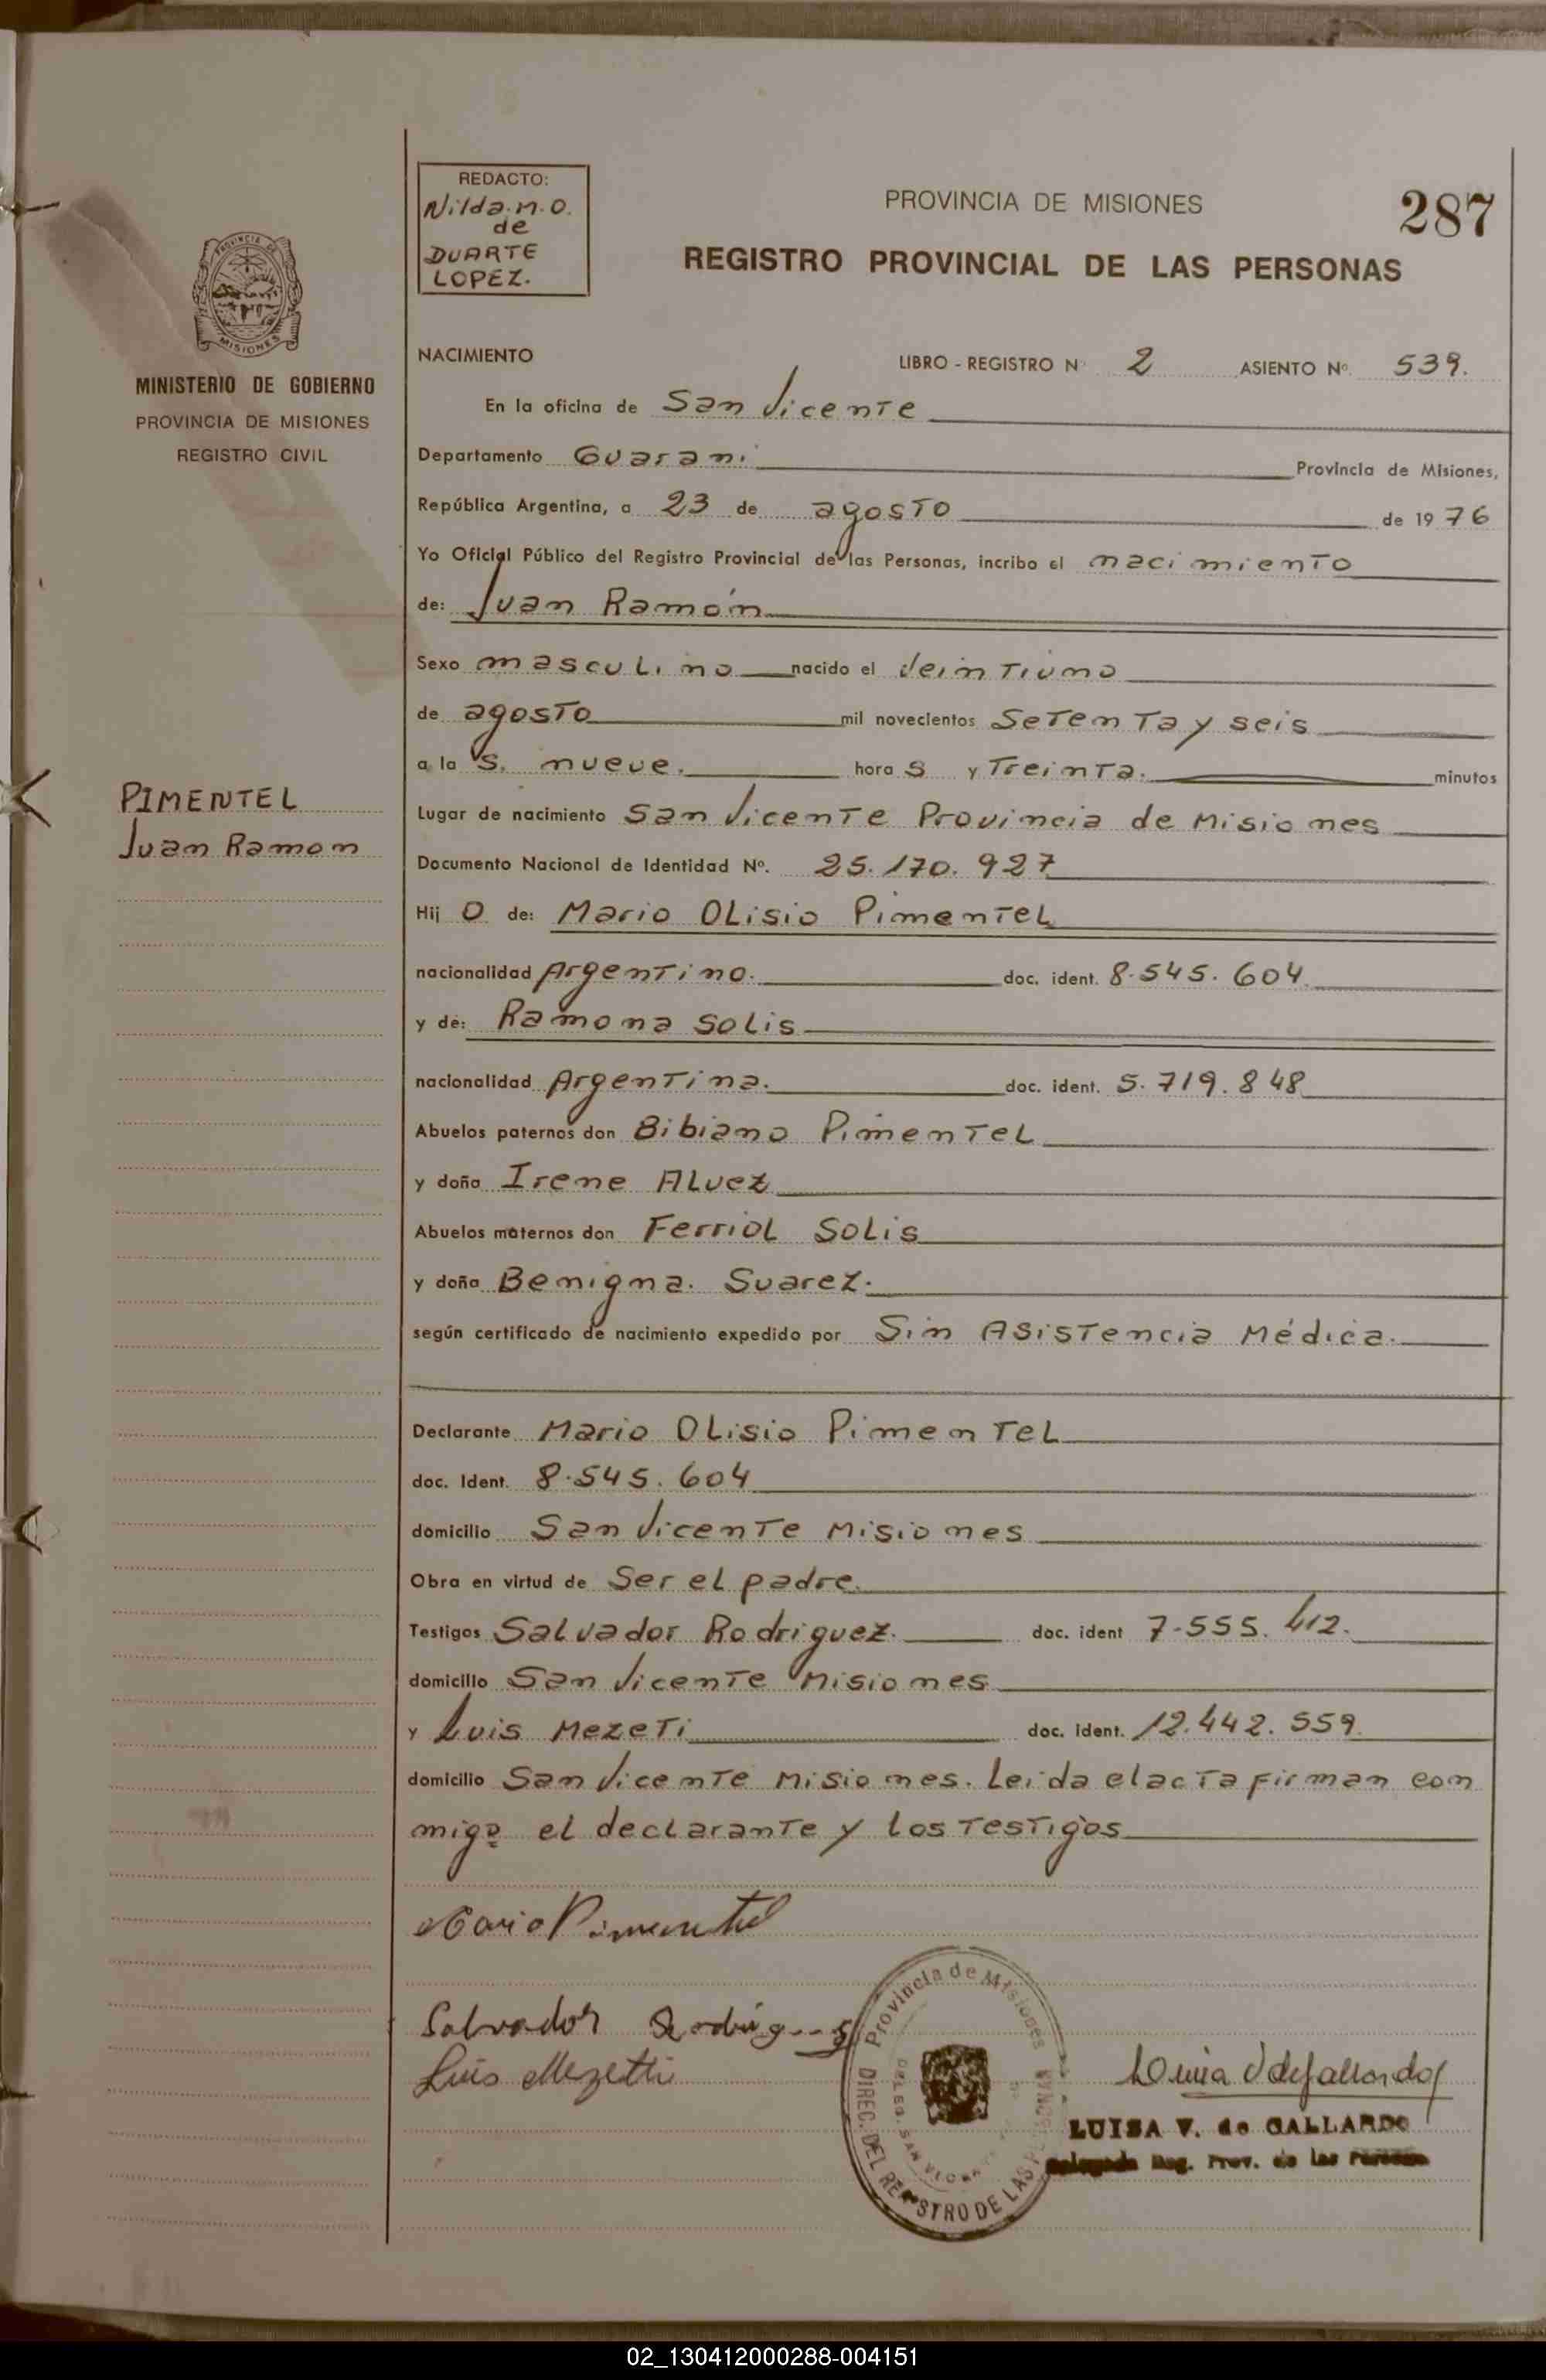 REDACTO:
Nilda.M.O.
de
DUARTE
LOPEZ.
PROVINCIA DE MISIONES
287
REGISTRO PROVINCIAL DE LAS PERSONAS
PROVINCIA DE
MISIONES
MINISTERIO DE GOBIERNO
PROVINCIA DE MISIONES
REGISTRO CIVIL
PIMENTEL
Juan Ramon
NACIMIENTO LIBRO - REGISTRO Nº 2 ASIENTO Nº. 539.
En la oficina de San Vicente
Departamento Guarani Provincia de Misiones,
República Argentina, a 23 de agosto de 1976
Yo Oficial Público del Registro Provincial de las Personas, incribo el nacimiento
de: Juan Ramón
Sexo masculino nacido el Veintiuno
de agosto mil novecientos Setenta y seis
a la s. nueve. hora s y Treinta. minutos
Lugar de nacimiento San Vicente Provincia de Misiones
Documento Nacional de Identidad Nº. 25.170.927
Hij o de: Mario Olisio Pimentel
nacionalidad Argentino. doc. ident. 8.545.604.
y de: Ramona Solis
nacionalidad Argentina. doc. ident. 5.719.848
Abuelos paternos don Bibiano Pimentel
y doña Irene Alvez
Abuelos maternos don Ferriol Solis
y doña Benigna. Suarez.
según certificado de nacimiento expedido por Sin Asistencia Médica.
Declarante Mario Olisio Pimentel
doc. Ident. 8.545.604
domicilio San Vicente Misiones
Obra en virtud de Ser el padre.
Testigos Salvador Rodriguez. doc. ident 7.555.412.
domicilio San Vicente Misiones
y Luis Mezeti doc. ident. 12.442.559.
domicilio San Vicente Misiones. Leida el acta firman con
migo el declarante y los Testigos
Mario Pimentel
Salvador
Luis Mezetti
Provincia de Misiones
DIREC. DEL REGISTRO DE LAS PERSONAS
DELEG. SAN VICENTE
LUISA V. de GALLARDO
Delegada Reg. Prov. de las Personas
02_130412000288-004151